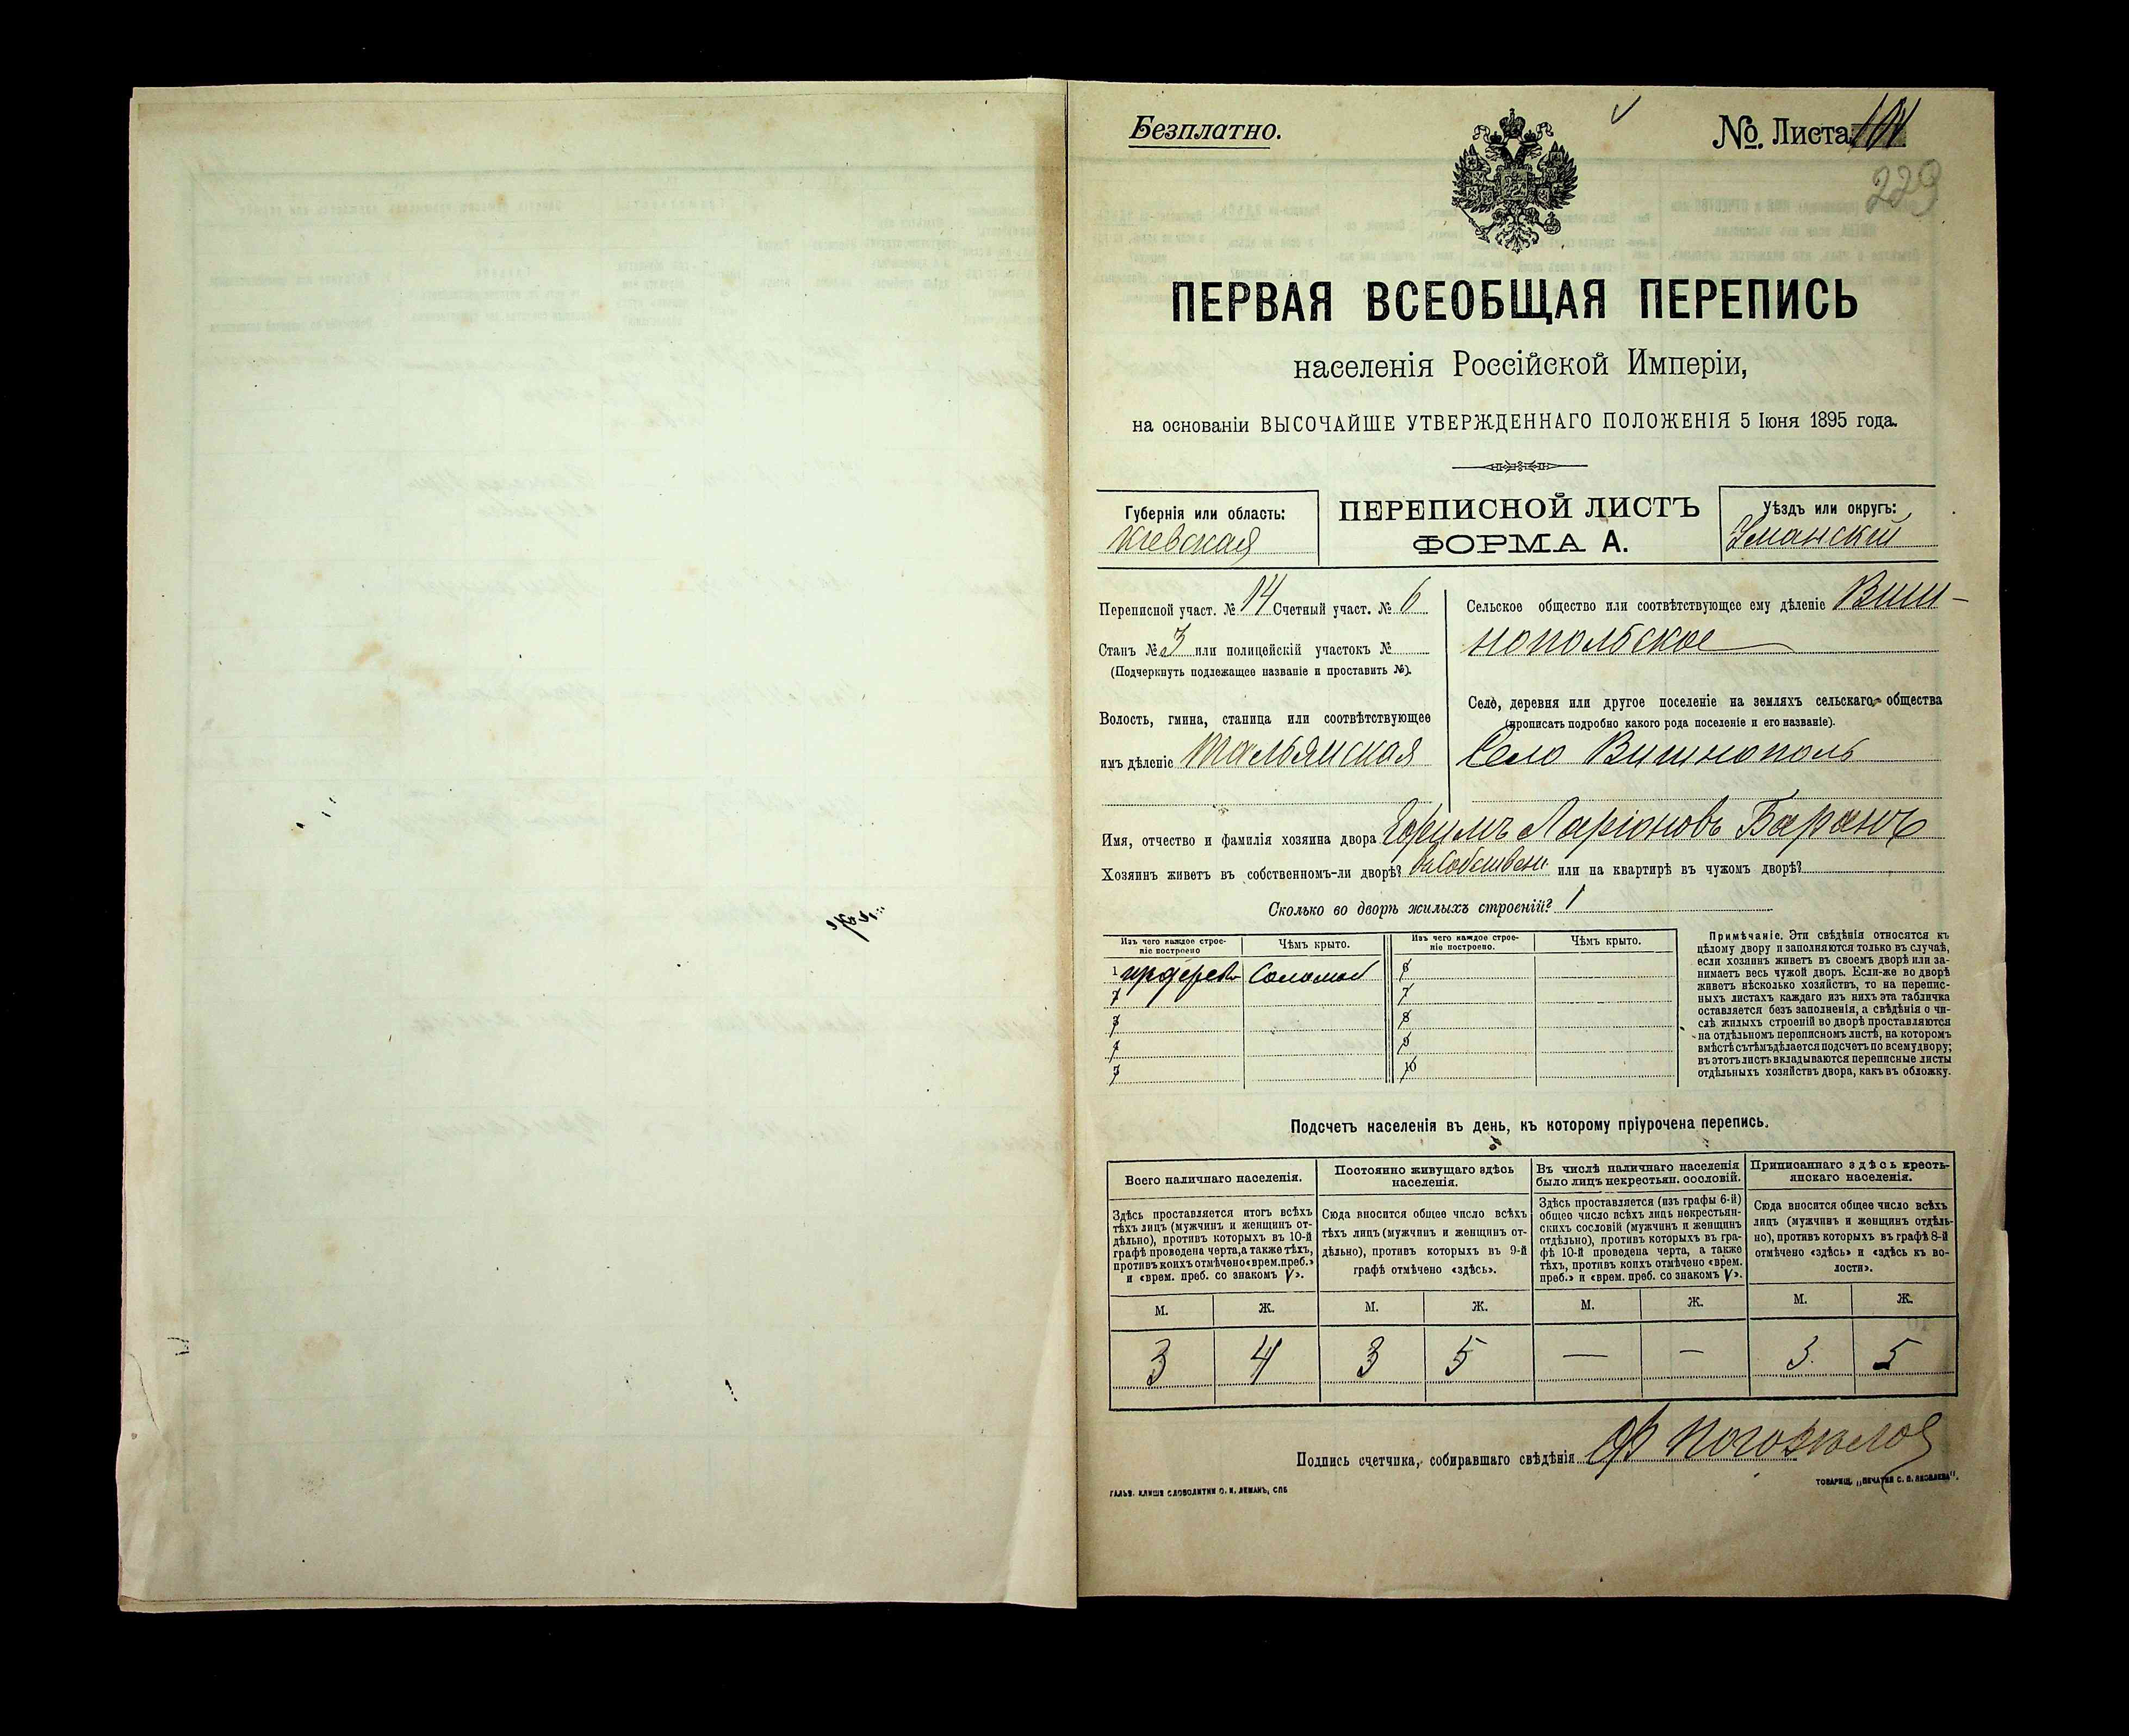 Безплатно.
№. Листа 101
229
ПЕРВАЯ ВСЕОБЩАЯ ПЕРЕПИСЬ
населенія Россійской Имперіи,
на основаніи ВЫСОЧАЙШЕ УТВЕРЖДЕННАГО ПОЛОЖЕНІЯ 5 Іюня 1895 года.
Губернія или область:
Кіевская
ПЕРЕПИСНОЙ ЛИСТЪ
ФОРМА А.
Уѣздъ или округъ:
Уманскій
Переписной участ. № 14 Счетный участ. № 6
Станъ № 3 или полицейскій участокъ №
(Подчеркнуть подлежащее названіе и проставить №).
Волость, гмина, станица или соотвѣтствующее
имъ дѣленіе Тальянская
Сельское общество или соотвѣтствующее ему дѣленіе Виш-
нопольское
Село, деревня или другое поселеніе на земляхъ сельскаго общества
(прописать подробно какого рода поселеніе и его названіе).
Село Вишнополь
Имя, отчество и фамилія хозяина двора Ефимъ Ларіоновъ Баранъ
Хозяинъ живетъ въ собственномъ-ли дворѣ? въ собствен. или на квартирѣ въ чужомъ дворѣ?
Сколько во дворѣ жилыхъ строеній? 1
Изъ чего каждое строе-
ніе построено
Чѣмъ крыто.
Изъ чего каждое строе-
ніе построено.
Чѣмъ крыто.
1 Соломой
2
3
4
5
6
7
8
9
10
Примѣчаніе. Эти свѣдѣнія относятся къ
цѣлому двору и заполняются только въ случаѣ,
если хозяинъ живетъ въ своемъ дворѣ или за-
нимаетъ весь чужой дворъ. Если-же во дворѣ
живетъ нѣсколько хозяйствъ, то на перепис-
ныхъ листахъ каждаго изъ нихъ эта табличка
оставляется безъ заполненія, а свѣдѣнія о чи-
слѣ жилыхъ строеній во дворѣ проставляются
на отдѣльномъ переписномъ листѣ, на которомъ
вмѣстѣ съ тѣмъ дѣлается подсчетъ по всему двору;
въ этотъ листъ вкладываются переписные листы
отдѣльныхъ хозяйствъ двора, какъ въ обложку.
Подсчетъ населенія въ день, къ которому пріурочена перепись.
Всего наличнаго населенія.
Здѣсь проставляется итогъ всѣхъ
тѣхъ лицъ (мужчинъ и женщинъ от-
дѣльно), противъ которыхъ въ 10-й
графѣ проведена черта, а также тѣхъ,
противъ коихъ отмѣчено «врем. преб.»
и «врем. преб. со знакомъ V».
Постоянно живущаго здѣсь
населенія.
Сюда вносится общее число всѣхъ
тѣхъ лицъ (мужчинъ и женщинъ от-
дѣльно), противъ которыхъ въ 9-й
графѣ отмѣчено «здѣсь».
Въ числѣ наличнаго населенія
было лицъ некрестьян. сословій.
Здѣсь проставляется (изъ графы 6-й)
общее число всѣхъ лицъ некрестьян-
скихъ сословій (мужчинъ и женщинъ
отдѣльно), противъ которыхъ въ гра-
фѣ 10-й проведена черта, а также
тѣхъ, противъ коихъ отмѣчено «врем.
преб.» и «врем. преб. со знакомъ V».
Приписаннаго здѣсь кресть-
янскаго населенія.
Сюда вносится общее число всѣхъ
лицъ (мужчинъ и женщинъ отдѣль-
но), противъ которыхъ въ графѣ 8-й
отмѣчено «здѣсь» и «здѣсь къ во-
лости».
М. Ж. М. Ж. М. Ж. М. Ж.
3 4 3 5 — — 3. 5
Подпись счетчика, собиравшаго свѣдѣнія
ГАЛЬВ. КЛИШЕ СЛОВОЛИТНИ О. И. ЛЕМАНЪ, СПБ
ТОВАРИЩ. „ПЕЧАТНИ С. П. ЯКОВЛЕВА".